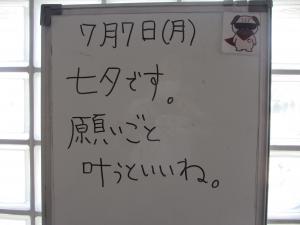 7月7日(月)
七夕です。
願いごと
叶うといいね。